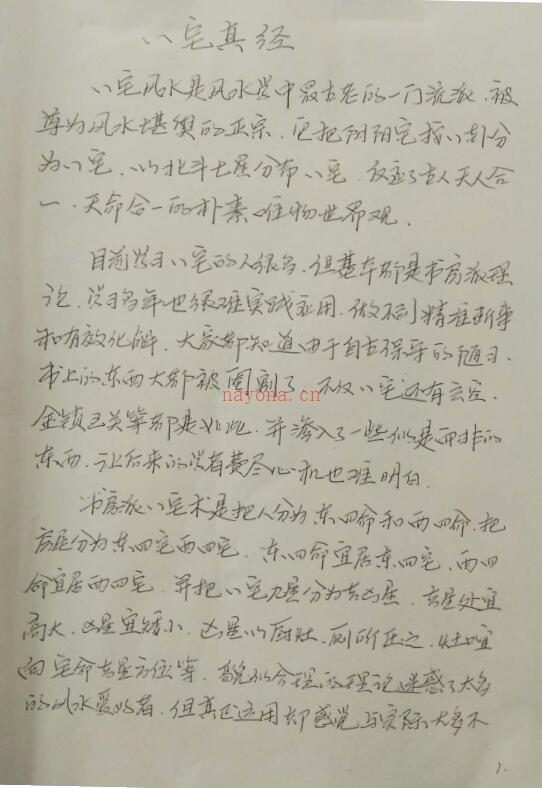 八宅真经
八宅风水是风水学中最古老的一门流派、被
尊为风水堪舆的正宗、它把阴阳宅按八卦分
为八宅、以北斗七星分布八宅、反映了古人天人合
一、天命合一的朴素唯物世界观.
目前学习八宅的人很多、但基本都是书房派理
论、学习多年也很难实践应用、做不到精准断事
和有效化解、大家都知道由于自古保守的陋习、
书上的东西大都被阉割了、不仅八宅还有玄空、
金锁玉关等都是如此、并渗入了一些似是而非的
东西、让后来的学者费尽心机也难明白.
书房派八宅术是把人分为东四命和西四命、把
房屋分为东四宅西四宅、东四命宜居东四宅、西四
命宜居西四宅、并把八宅九星分为吉凶星、吉星处宜
高大、凶星宜矮小、凶星以厨灶、厕所压之、灶口宜
向宅命吉星方位等、貌似合理的理论迷惑了太多
的风水爱好者、但真正运用却感觉与实际大多不
1.
nayona.cn